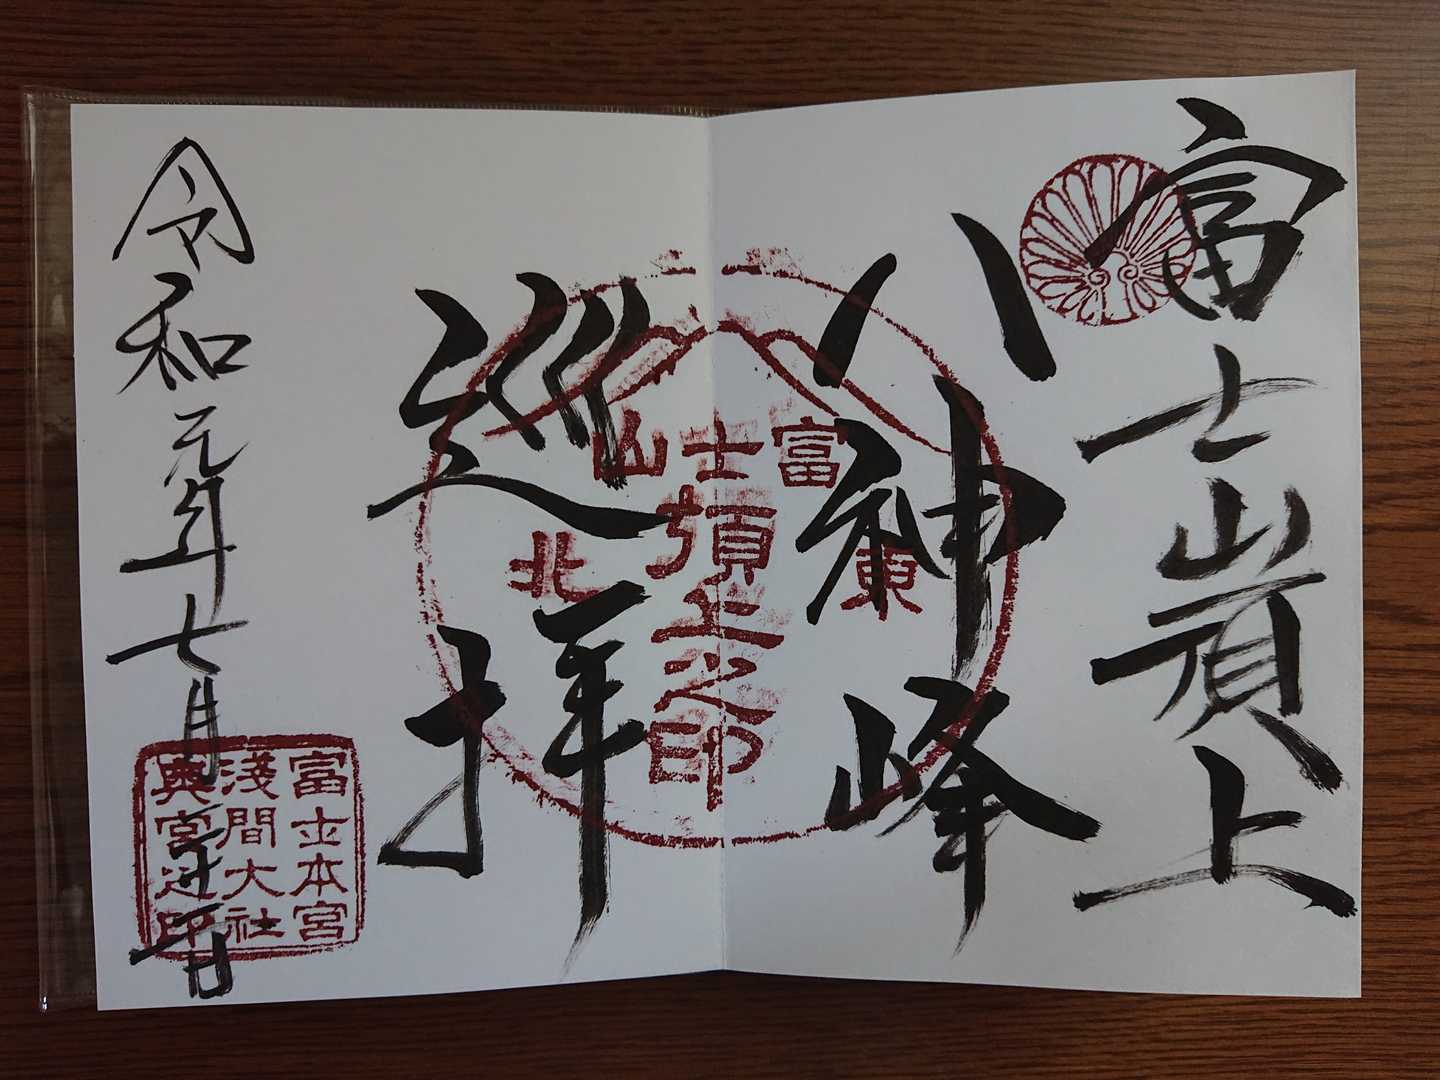 富士山頂上
八神峰
巡拝
令和元年七月
富士山
頂上之印
東
北
富士本宮
淺間大社
奥宮之印